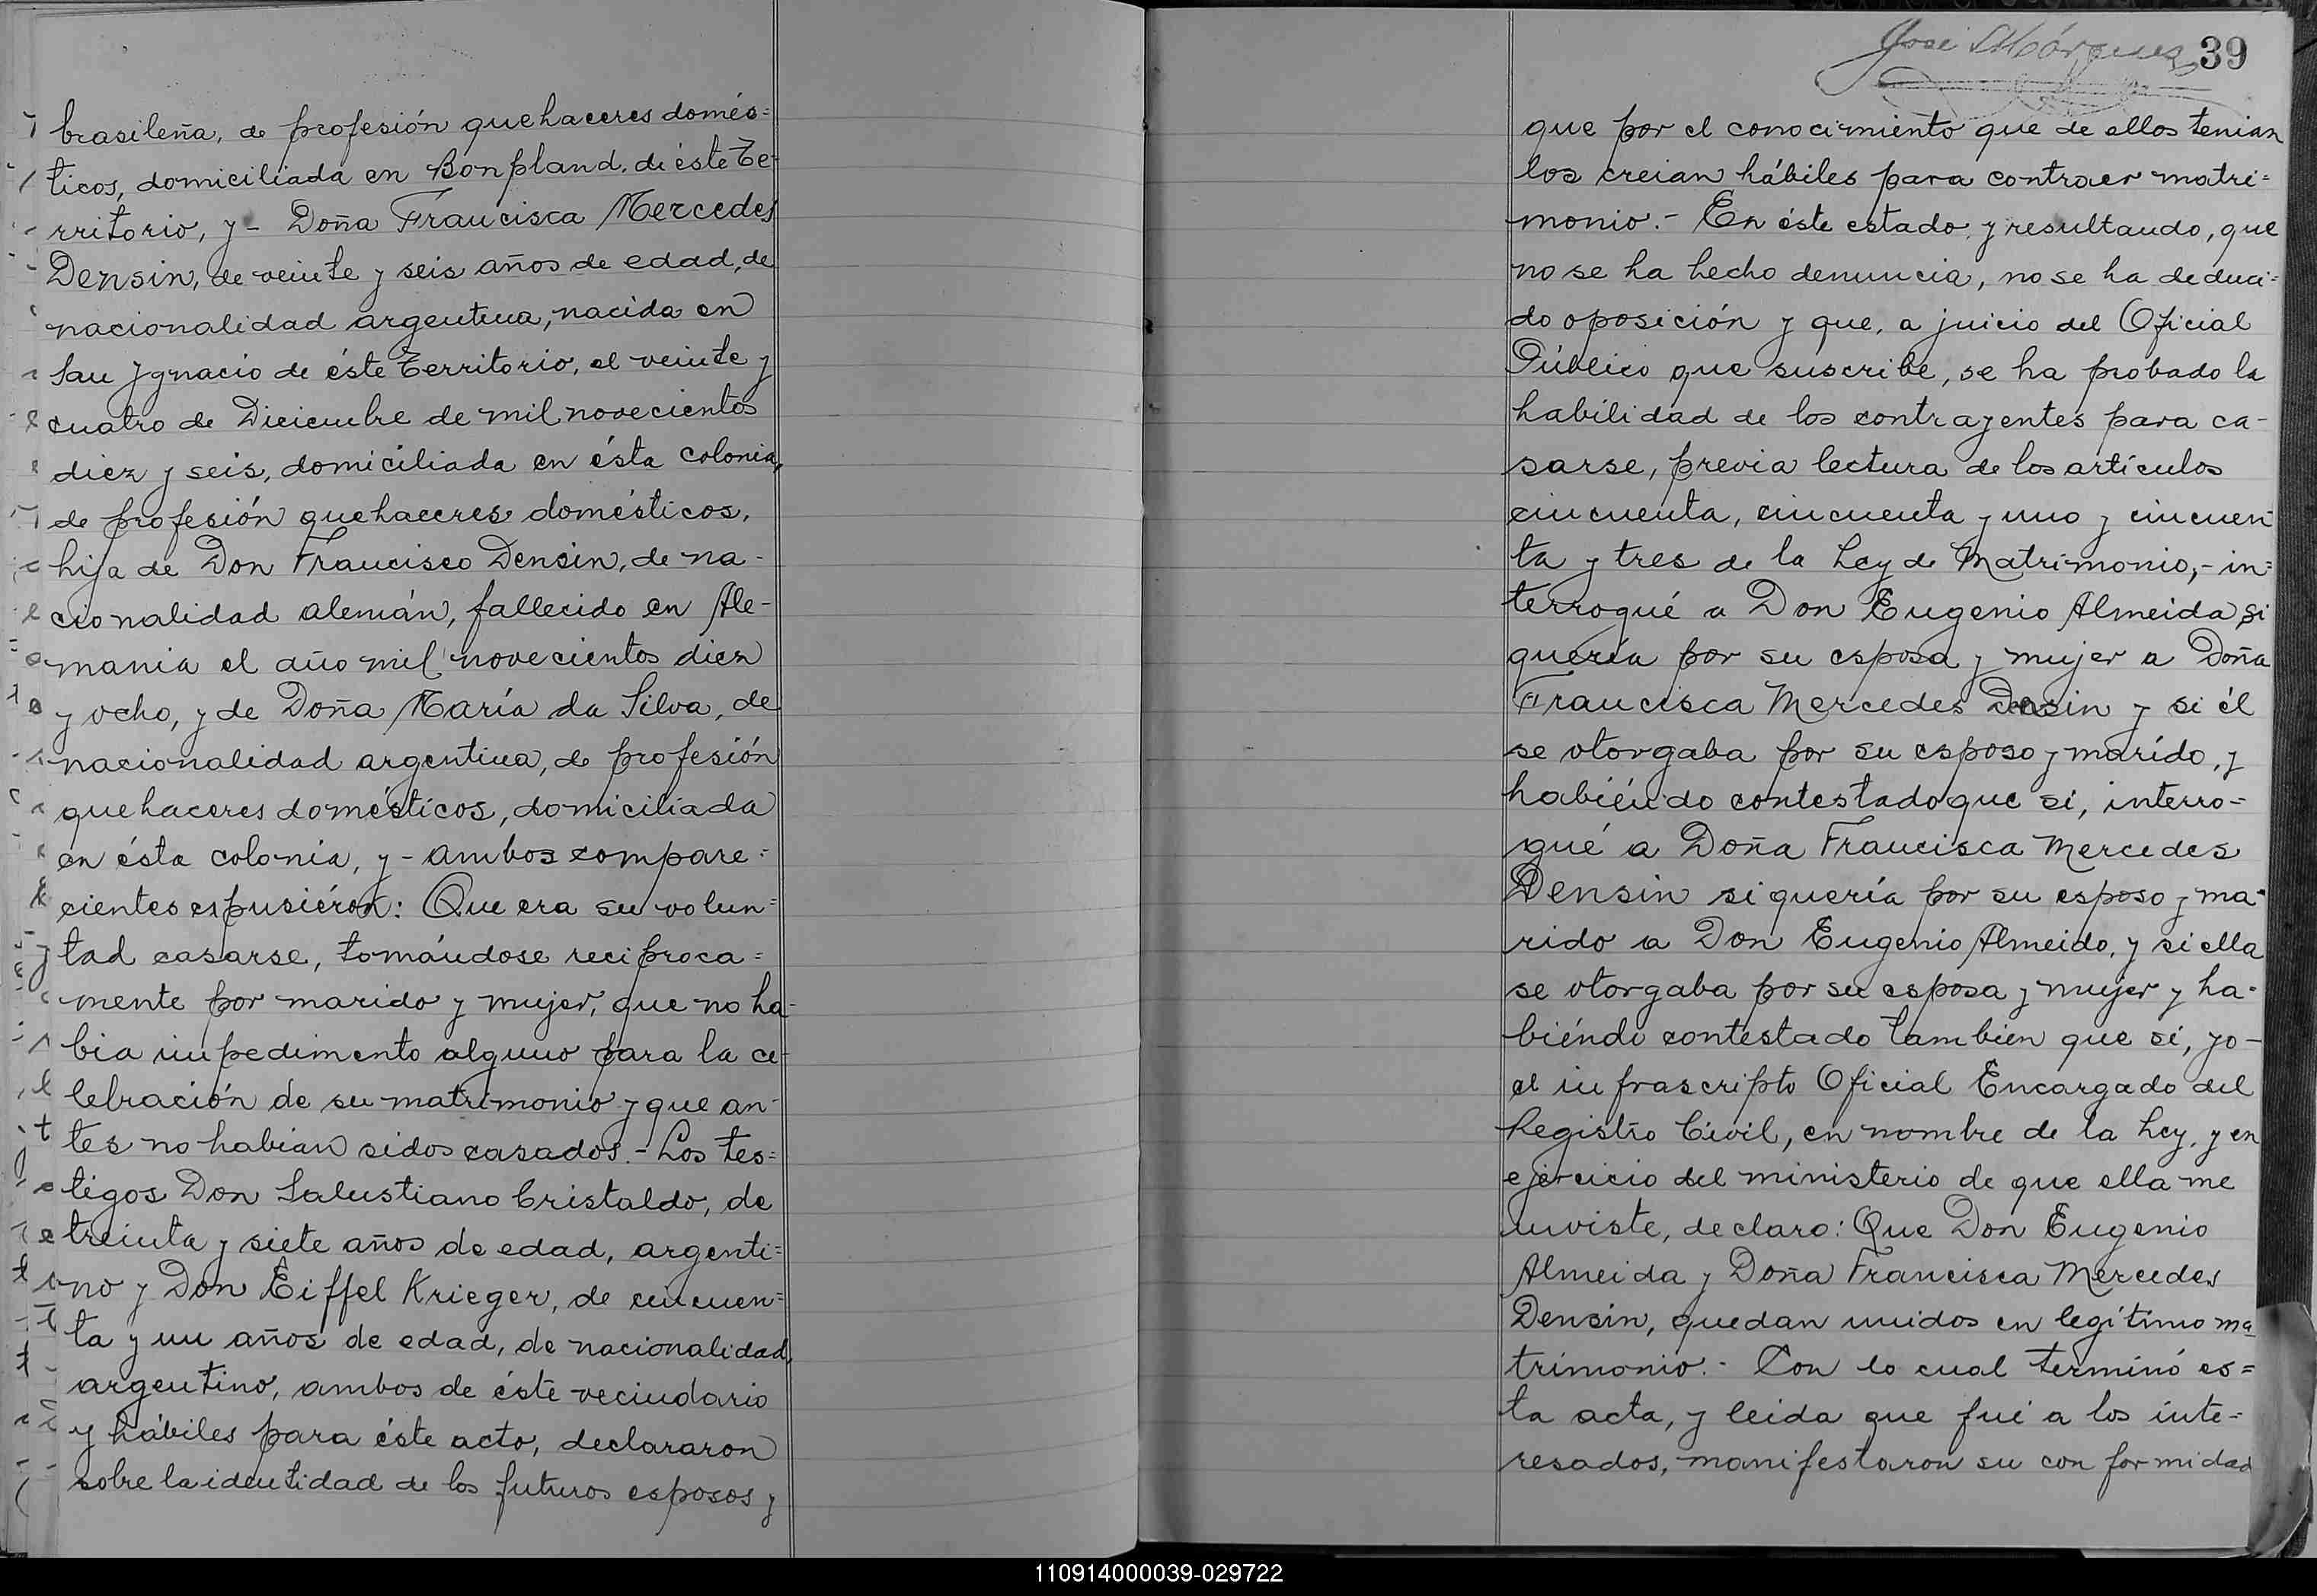 brasileña, de profesión quehaceres domés=
ticos, domiciliada en Bonpland, de éste Te-
rritorio, y- Doña Francisca Mercedes
Densin, de veinte y seis años de edad, de
nacionalidad argentina, nacida en
San Ygnacio de éste Territorio, el veinte y
cuatro de Diciembre de mil novecientos
diez y seis, domiciliada en ésta colonia,
de profesión quehaceres domésticos,
hija de Don Francisco Densin, de na-
cionalidad alemán, fallecido en Ale-
mania el año mil novecientos diez
y ocho, y de Doña María da Silva, de
nacionalidad argentina, de profesión
quehaceres domésticos, domiciliada
en ésta colonia, y- ambos compare=
cientes expusiéron: Que era su volun=
tad casarse, tomándose reciproca=
mente por marido y mujer, que no ha-
bia impedimento alguno para la ce-
lebración de su matrimonio y que an-
tes no habian sidos casados.- Los tes=
tigos Don Salustiano Cristaldo, de
treinta y siete años de edad, argenti=
no y Don Eiffel Krieger, de cincuen=
ta y un años de edad, de nacionalidad,
argentino, ambos de éste vecindario
y hábiles para éste acto, declararon
sobre la identidad de los futuros esposos y
José Márquez 39
que por el conocimiento que de ellos tenian
los creian hábiles para contraer matri=
monio.- En éste estado y resultando, que
no se ha hecho denuncia, no se ha deduci=
do oposición y que, a juicio del Oficial
Público que suscribe, se ha probado la
habilidad de los contrayentes para ca-
sarse, previa lectura de los artículos
cincuenta, cincuenta y uno y cincuen-
ta y tres de la Ley de Matrimonio,- in=
terrogué a Don Eugenio Almeida si
quería por su esposa y mujer a Doña
Francisca Mercedes Densin y si él
se otorgaba por su esposo y marido, y
habiéndo contestado que si, interro=
gué a Doña Francisca Mercedes
Densin si quería por su esposo y ma=
rido a Don Eugenio Almeido, y si ella
se otorgaba por su esposa y mujer y ha-
biéndo contestado tambien que si, yo-
el infrascripto Oficial Encargado del
Registro Civil, en nombre de la Ley, y en
ejercicio del ministerio de que ella me
inviste, declaro: Que Don Eugenio
Almeida y Doña Francisca Mercedes
Densin, quedan unidos en legítimo ma
trimonio.- Con lo cual terminó es=
ta acta, y leida que fué a los inte=
resados, manifestaron su conformidad
110914000039-029722